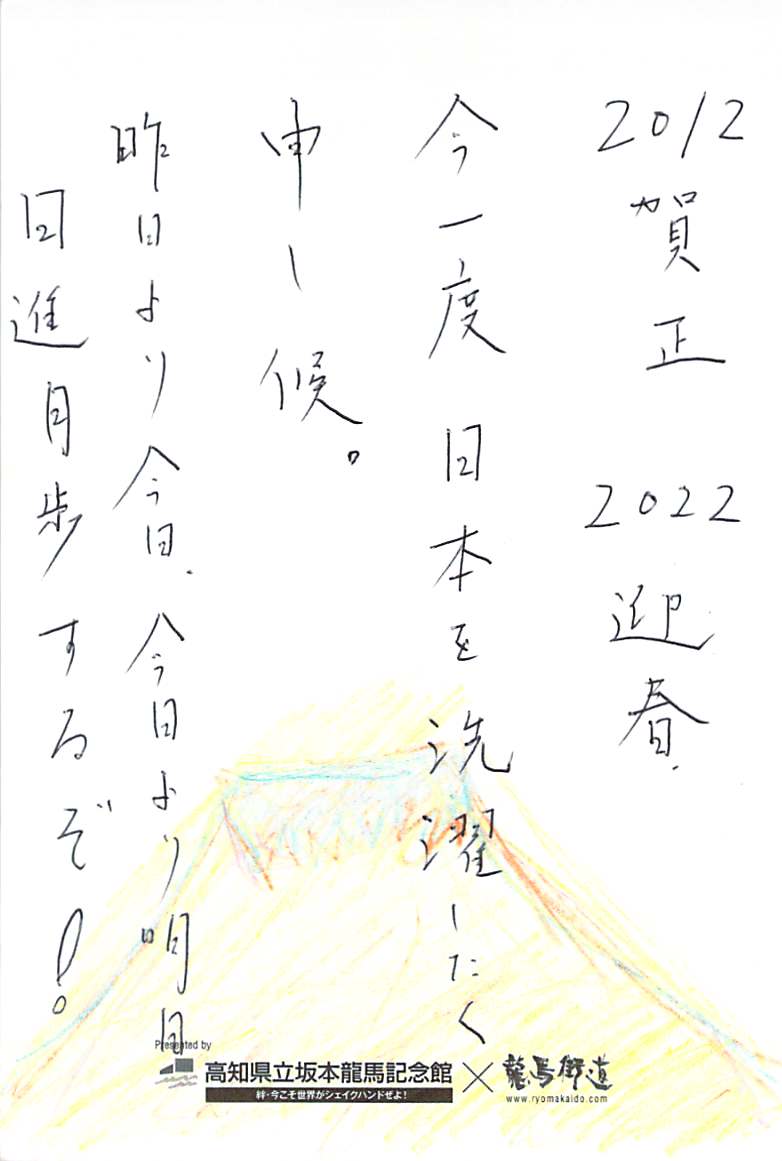 2012 賀正 2022 迎春.
今一度 日本を洗濯したく
申し候。
昨日より今日、今日より明日
日進月歩するぞ!
Presented by
高知県立坂本龍馬記念館 × 龍馬街道
絆・今こそ世界がシェイクハンドぜよ!
www.ryomakaido.com